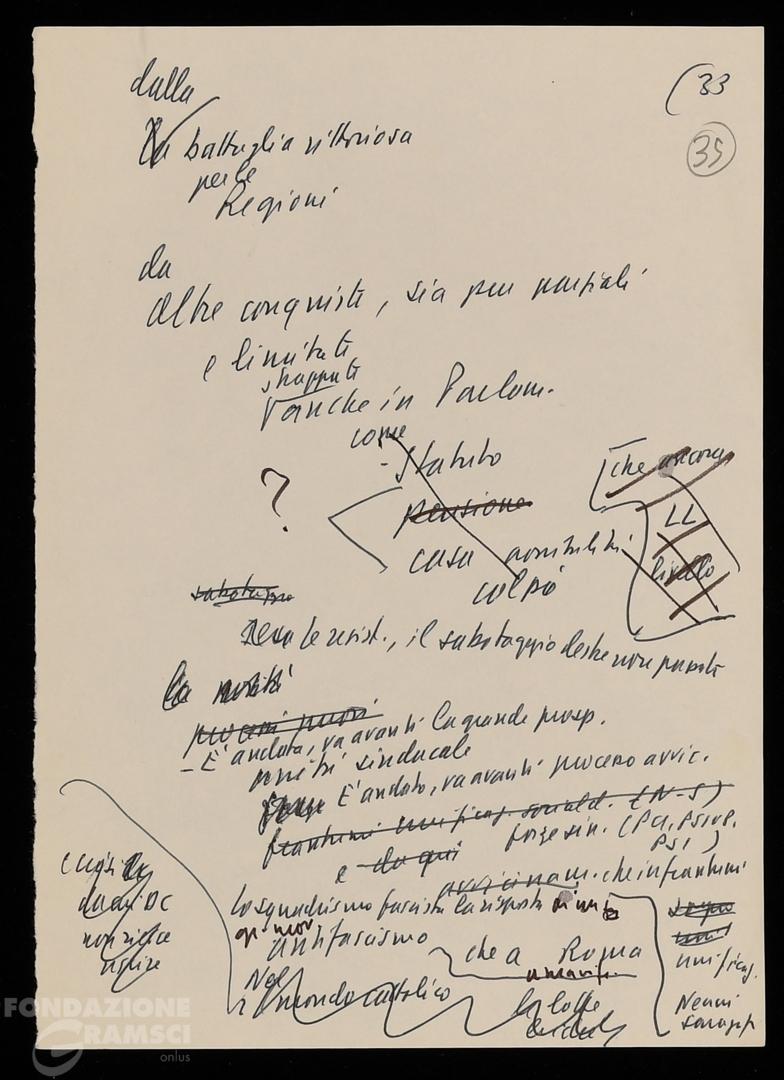 (33
35
dalla
La battaglia vittoriosa
per le
Regioni
da
altre conquiste, sia pur parziali
e limitate
strappate
anche in Parlam.
come
- Statuto
?
pensione
casa
colpo
che ancora
LL
livello
sabotaggio
le resist., il sabotaggio destre non passate
la novità
processi nuovi
- È andata, va avanti la grande prosp.
unità sindacale
È andato, va avanti processo avvic.
frantumi unificaz. sociald. (N-S)
forze sin. (PCI, PSIUP,
PSI)
e da qui
avvicinam. che in frantumi
lo squadrismo fascista la risposta di unità
antifascismo
che a Roma
Nel
mondo cattolico
le lotte
dc
non riesce
unificaz.
Nenni
Saragat
FONDAZIONE
GRAMSCI
onlus